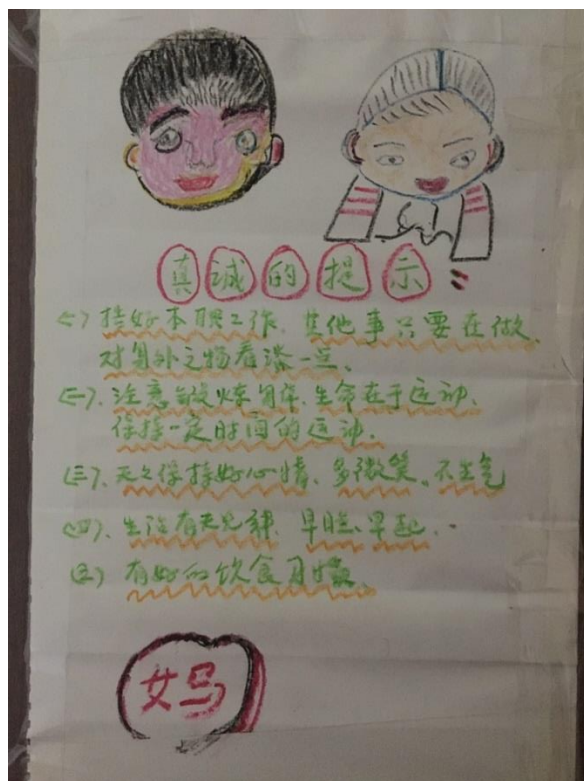 真诚的提示
(一)搞好本职工作、其他事只要在做、
对身外之物看淡一点、
(二)、注意锻炼身体、生命在于运动、
保持一定时间的运动、
(三)、天天保持好心情、多微笑、不生气
(四)、生活有规律、早睡、早起、
(五)有好的饮食习惯、
妈